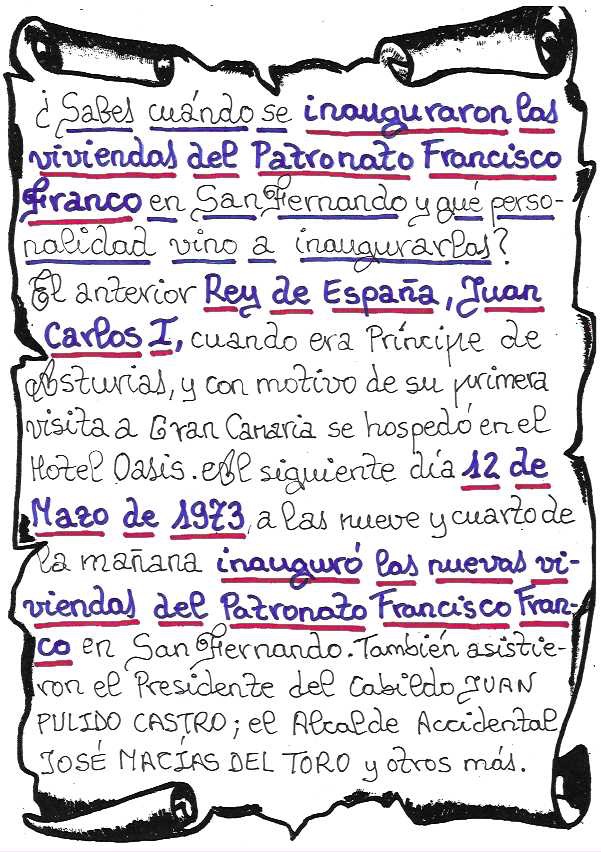 ¿Sabes cuándo se inauguraron las
viviendas del Patronato Francisco
Franco en San Fernando y qué perso-
nalidad vino a inaugurarlas?
El anterior Rey de España, Juan
Carlos I, cuando era Príncipe de
Asturias, y con motivo de su primera
visita a Gran Canaria se hospedó en el
Hotel Oasis. Al siguiente día 12 de
Mazo de 1973, a las nueve y cuarto de
la mañana inauguró las nuevas vi-
viendas del Patronato Francisco Fran-
co en San Fernando. También asistie-
ron el Presidente del Cabildo JUAN
PULIDO CASTRO; el Alcalde Accidental
JOSÉ MACÍAS DEL TORO y otros más.